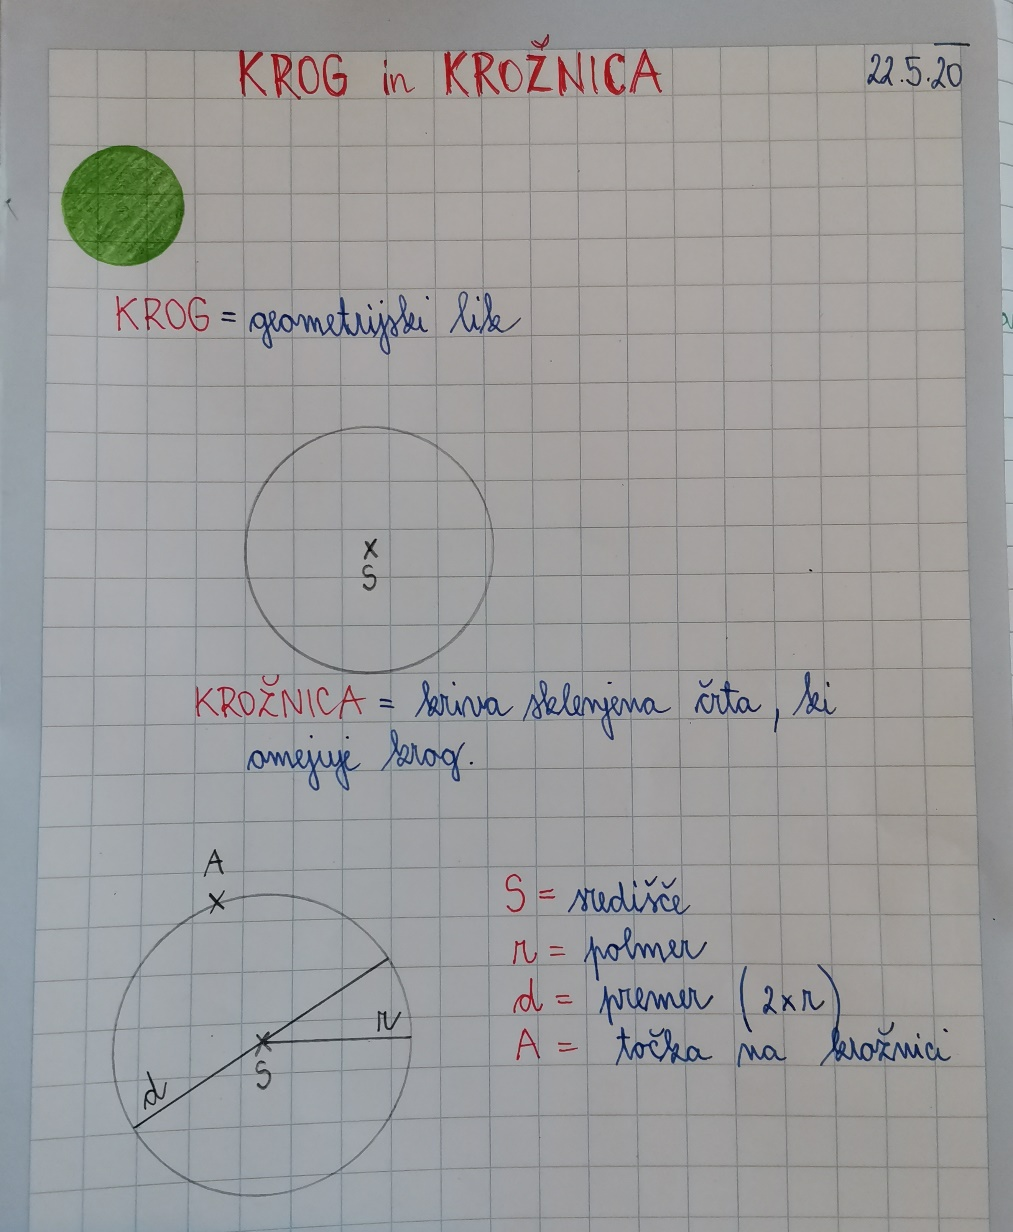 KROG in KROŽNICA
22.5.20
KROG = geometrijski lik
x
S
KROŽNICA = kriva sklenjena črta, ki
omejuje krog.
A
x
S = središče
r = polmer
d = premer (2xr)
A = točka na krožnici
r
x
S
d